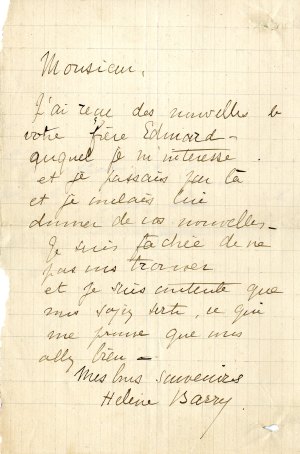 Monsieur,
J'ai reçu des nouvelles de
votre frère Edmond -
auquel je m'interesse
et je passais par là
et je voulais lui
donner de vos nouvelles -
Je suis fachée de ne
pas vous trouver
et je suis contente que
vous soyez sorti, ce qui
me prouve que vous
allez bien -
Mes bons souvenirs
Helène Barry.